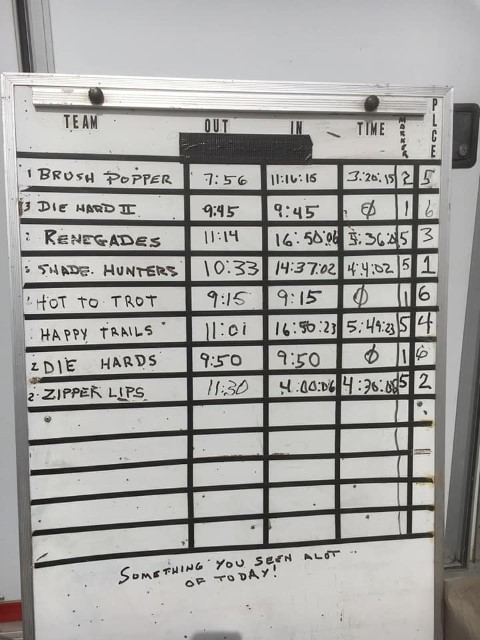 TEAM OUT IN TIME MARKER PLCE
1 BRUSH POPPER 7:56 11:16:15 3:20:15 2 5
3 DIE HARD II 9:45 9:45 Ø 1 6
RENEGADES 11:14 16:50:06 5:36:06 5 3
SHADE HUNTERS 10:33 14:37:02 4:4:02 5 1
HOT TO TROT 9:15 9:15 Ø 1 6
HAPPY TRAILS 11:01 16:50:23 5:49:23 5 4
2 DIE HARDS 9:50 9:50 Ø 1 6
2 ZIPPER LIPS 11:30 4:00:06 5 2
SOMETHING YOU SEEN ALOT
OF TODAY!